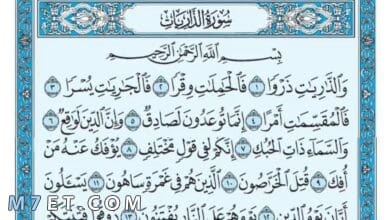 سُورَةُ الذَّارِيَاتِ
بِسْمِ اللَّهِ الرَّحْمَٰنِ الرَّحِيمِ
وَالذَّٰرِيَٰتِ ذَرْوًا ١ فَالْحَٰمِلَٰتِ وِقْرًا ٢ فَالْجَٰرِيَٰتِ يُسْرًا ٣
فَالْمُقَسِّمَٰتِ أَمْرًا ٤ إِنَّمَا تُوعَدُونَ لَصَادِقٌ ٥ وَإِنَّ الدِّينَ لَوَٰقِعٌ ٦
وَالسَّمَاءِ ذَاتِ الْحُبُكِ ٧ إِنَّكُمْ لَفِي قَوْلٍ مُّخْتَلِفٍ ٨ يُؤْفَكُ عَنْهُ مَنْ
أُفِكَ ٩ قُتِلَ الْخَرَّٰصُونَ ١٠ الَّذِينَ هُمْ فِي غَمْرَةٍ سَاهُونَ ١١ يَسْـَٔلُونَ
أَيَّانَ يَوْمُ الدِّينِ ١٢ يَوْمَ هُمْ عَلَى النَّارِ يُفْتَنُونَ ١٣ ذُوقُوا فِتْنَتَكُمْ
M7ET.COM